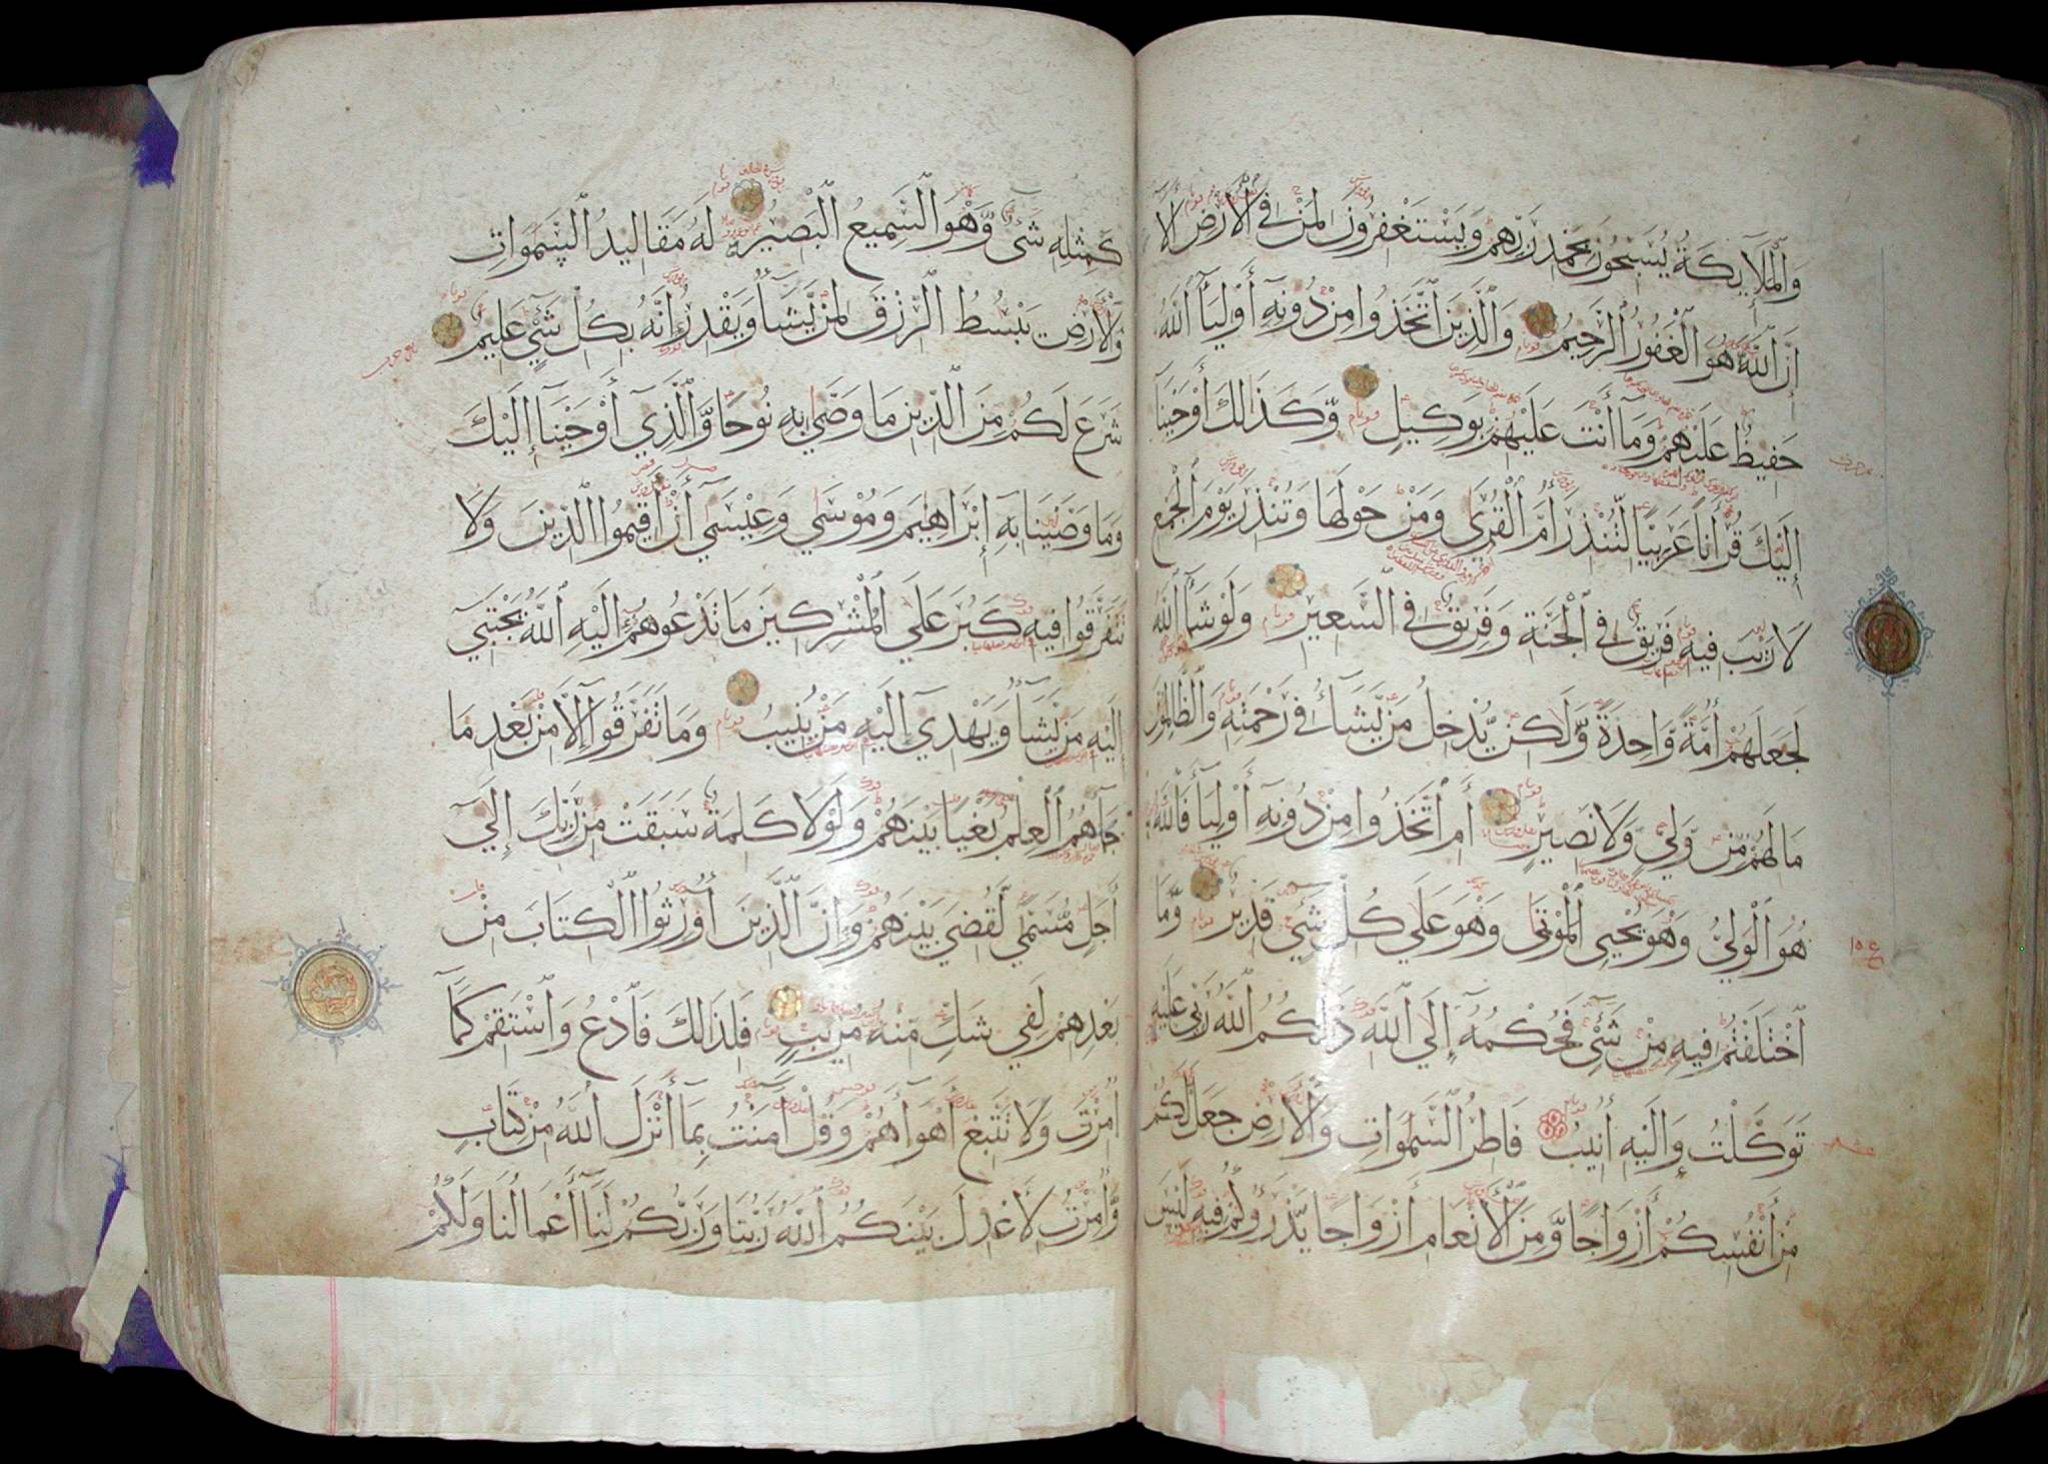 وَالْمَلَآئِكَةُ يُسَبِّحُونَ بِحَمْدِ رَبِّهِمْ وَيَسْتَغْفِرُونَ لِمَنْ فِي الْأَرْضِ أَلَا
إِنَّ اللَّهَ هُوَ الْغَفُورُ الرَّحِيمُ وَالَّذِينَ اتَّخَذُوا مِنْ دُونِهِ أَوْلِيَآءَ اللَّهُ
حَفِيظٌ عَلَيْهِمْ وَمَآ أَنْتَ عَلَيْهِمْ بِوَكِيلٍ وَكَذَٰلِكَ أَوْحَيْنَآ
إِلَيْكَ قُرْآنًا عَرَبِيًّا لِّتُنْذِرَ أُمَّ الْقُرَىٰ وَمَنْ حَوْلَهَا وَتُنْذِرَ يَوْمَ الْجَمْعِ
لَا رَيْبَ فِيهِ فَرِيقٌ فِي الْجَنَّةِ وَفَرِيقٌ فِي السَّعِيرِ وَلَوْ شَآءَ اللَّهُ
لَجَعَلَهُمْ أُمَّةً وَّاحِدَةً وَّلَٰكِنْ يُّدْخِلُ مَنْ يَّشَآءُ فِي رَحْمَتِهِ وَالظَّالِمُونَ
مَا لَهُمْ مِّنْ وَّلِيٍّ وَّلَا نَصِيرٍ أَمِ اتَّخَذُوا مِنْ دُونِهِ أَوْلِيَآءَ فَاللَّهُ
هُوَ الْوَلِيُّ وَهُوَ يُحْيِي الْمَوْتَىٰ وَهُوَ عَلَىٰ كُلِّ شَيْءٍ قَدِيرٌ وَّمَا
اخْتَلَفْتُمْ فِيهِ مِنْ شَيْءٍ فَحُكْمُهُ إِلَى اللَّهِ ذَٰلِكُمُ اللَّهُ رَبِّي عَلَيْهِ
تَوَكَّلْتُ وَإِلَيْهِ أُنِيبُ فَاطِرُ السَّمَٰوَاتِ وَالْأَرْضِ جَعَلَ لَكُمْ
مِّنْ أَنْفُسِكُمْ أَزْوَاجًا وَّمِنَ الْأَنْعَامِ أَزْوَاجًا يَذْرَؤُكُمْ فِيهِ لَيْسَ
كَمِثْلِهِ شَيْءٌ وَّهُوَ السَّمِيعُ الْبَصِيرُ لَهُ مَقَالِيدُ السَّمَوَاتِ
وَالْأَرْضِ يَبْسُطُ الرِّزْقَ لِمَنْ يَّشَآءُ وَيَقْدِرُ إِنَّهُ بِكُلِّ شَيْءٍ عَلِيمٌ
شَرَعَ لَكُمْ مِّنَ الدِّينِ مَا وَصَّىٰ بِهِ نُوحًا وَّالَّذِي أَوْحَيْنَآ إِلَيْكَ
وَمَا وَصَّيْنَا بِهِ إِبْرَاهِيمَ وَمُوسَىٰ وَعِيسَىٰ أَنْ أَقِيمُوا الدِّينَ وَلَا
تَتَفَرَّقُوا فِيهِ كَبُرَ عَلَى الْمُشْرِكِينَ مَا تَدْعُوهُمْ إِلَيْهِ اللَّهُ يَجْتَبِي
إِلَيْهِ مَنْ يَّشَآءُ وَيَهْدِي إِلَيْهِ مَنْ يُّنِيبُ وَمَا تَفَرَّقُوا إِلَّا مِنْ بَعْدِ مَا
جَآءَهُمُ الْعِلْمُ بَغْيًا بَيْنَهُمْ وَلَوْلَا كَلِمَةٌ سَبَقَتْ مِنْ رَّبِّكَ إِلَىٰ
أَجَلٍ مُّسَمًّى لَّقُضِيَ بَيْنَهُمْ وَإِنَّ الَّذِينَ أُورِثُوا الْكِتَابَ مِنْ
بَعْدِهِمْ لَفِي شَكٍّ مِّنْهُ مُرِيبٍ فَلِذَٰلِكَ فَادْعُ وَاسْتَقِمْ كَمَآ
أُمِرْتَ وَلَا تَتَّبِعْ أَهْوَآءَهُمْ وَقُلْ آمَنْتُ بِمَآ أَنْزَلَ اللَّهُ مِنْ كِتَابٍ
وَّأُمِرْتُ لِأَعْدِلَ بَيْنَكُمُ اللَّهُ رَبُّنَا وَرَبُّكُمْ لَنَآ أَعْمَالُنَا وَلَكُمْ